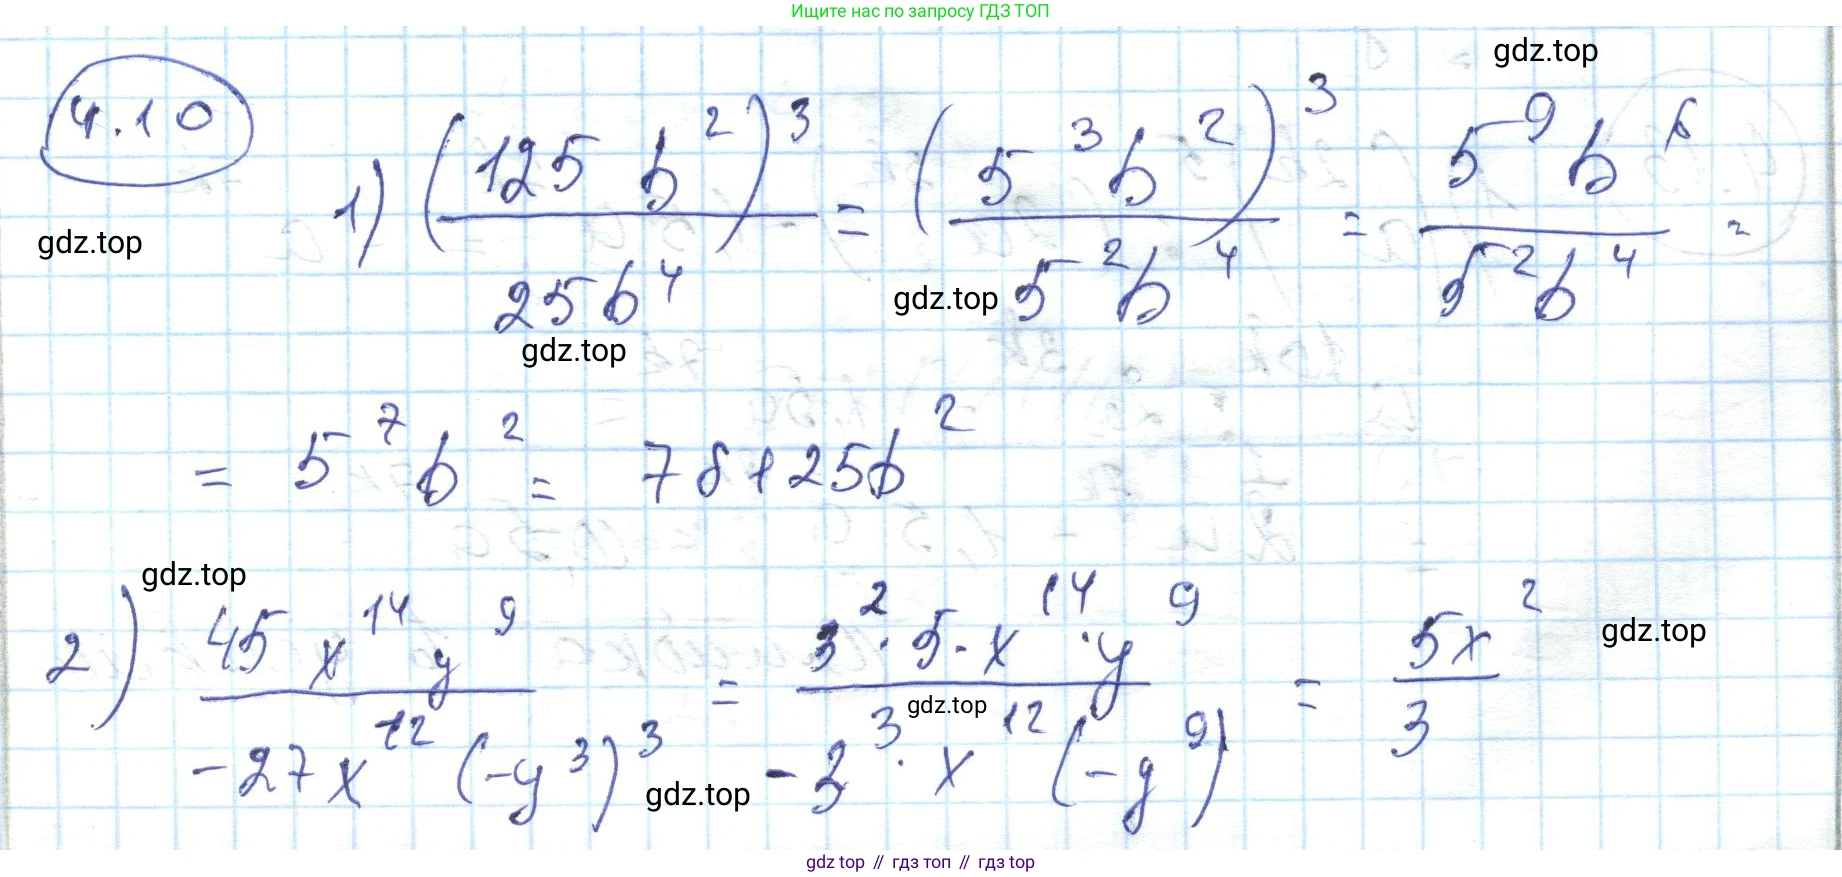 Ищите нас по запросу ГДЗ ТОП
gdz.top
4.10
1) (125 b²)³ / 25b⁴ = (5³b²)³ / 5²b⁴ = 5⁹b⁶ / 5²b⁴ =
gdz.top
gdz.top
gdz.top
= 5⁷b² = 78125b²
gdz.top
2) 45x¹⁴y⁹ / -27x¹²(-y³)³ = 3²·5·x¹⁴·y⁹ / -3³·x¹²(-y⁹) = 5x² / 3
gdz.top
gdz.top
gdz.top
gdz top // гдз топ // gdz top